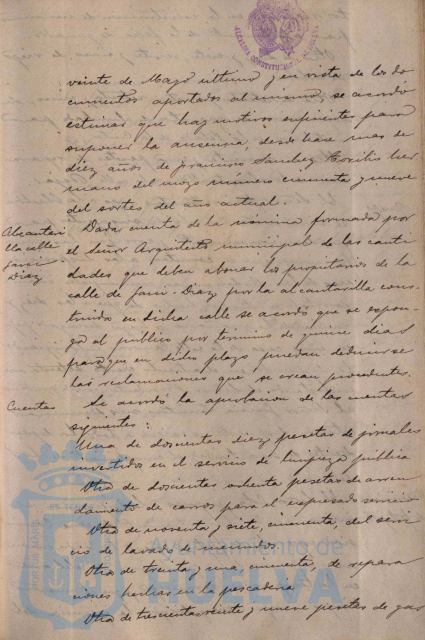 ALCALDIA CONSTITUCIONAL
veinte de Mayo último y en vista de los do
cumentos aportados al mismo, se acordó
estimar que hay motivos suficientes para
suponer la ausencia, desde hace mas de
diez años de Francisco Sanchez Cecilio her
mano del mozo número cincuenta y nueve
del sorteo del año actual.
Alcantari
lla calle
Garci-
Diaz
Dada cuenta de la nómina formada por
el Señor Arquitecto municipal de las canti
dades que deben abonar los propietarios de la
calle de Garci-Diaz por la alcantarilla cons-
truida en dicha calle se acordó que se expon-
ga al público por termino de quince dias
para que en dicho plazo puedan deducirse
las reclamaciones que se crean procedentes.
Cuentas
Se acordó la aprobacion de las cuentas
siguientes:
Una de doscientas diez pesetas de jornales
invertidos en el servicio de limpieza pública
Otra de doscientas ochenta pesetas de arren
damiento de carros para el expresado servicio
Otra de noventa y siete, cincuenta, del servi
cio de lavado
Otra de treinta y una, cincuenta, de repara
ciones hechas en la pescaderia
Otra de trescientas veinte y nueve pesetas de gas
Ayuntamiento de
HUELVA